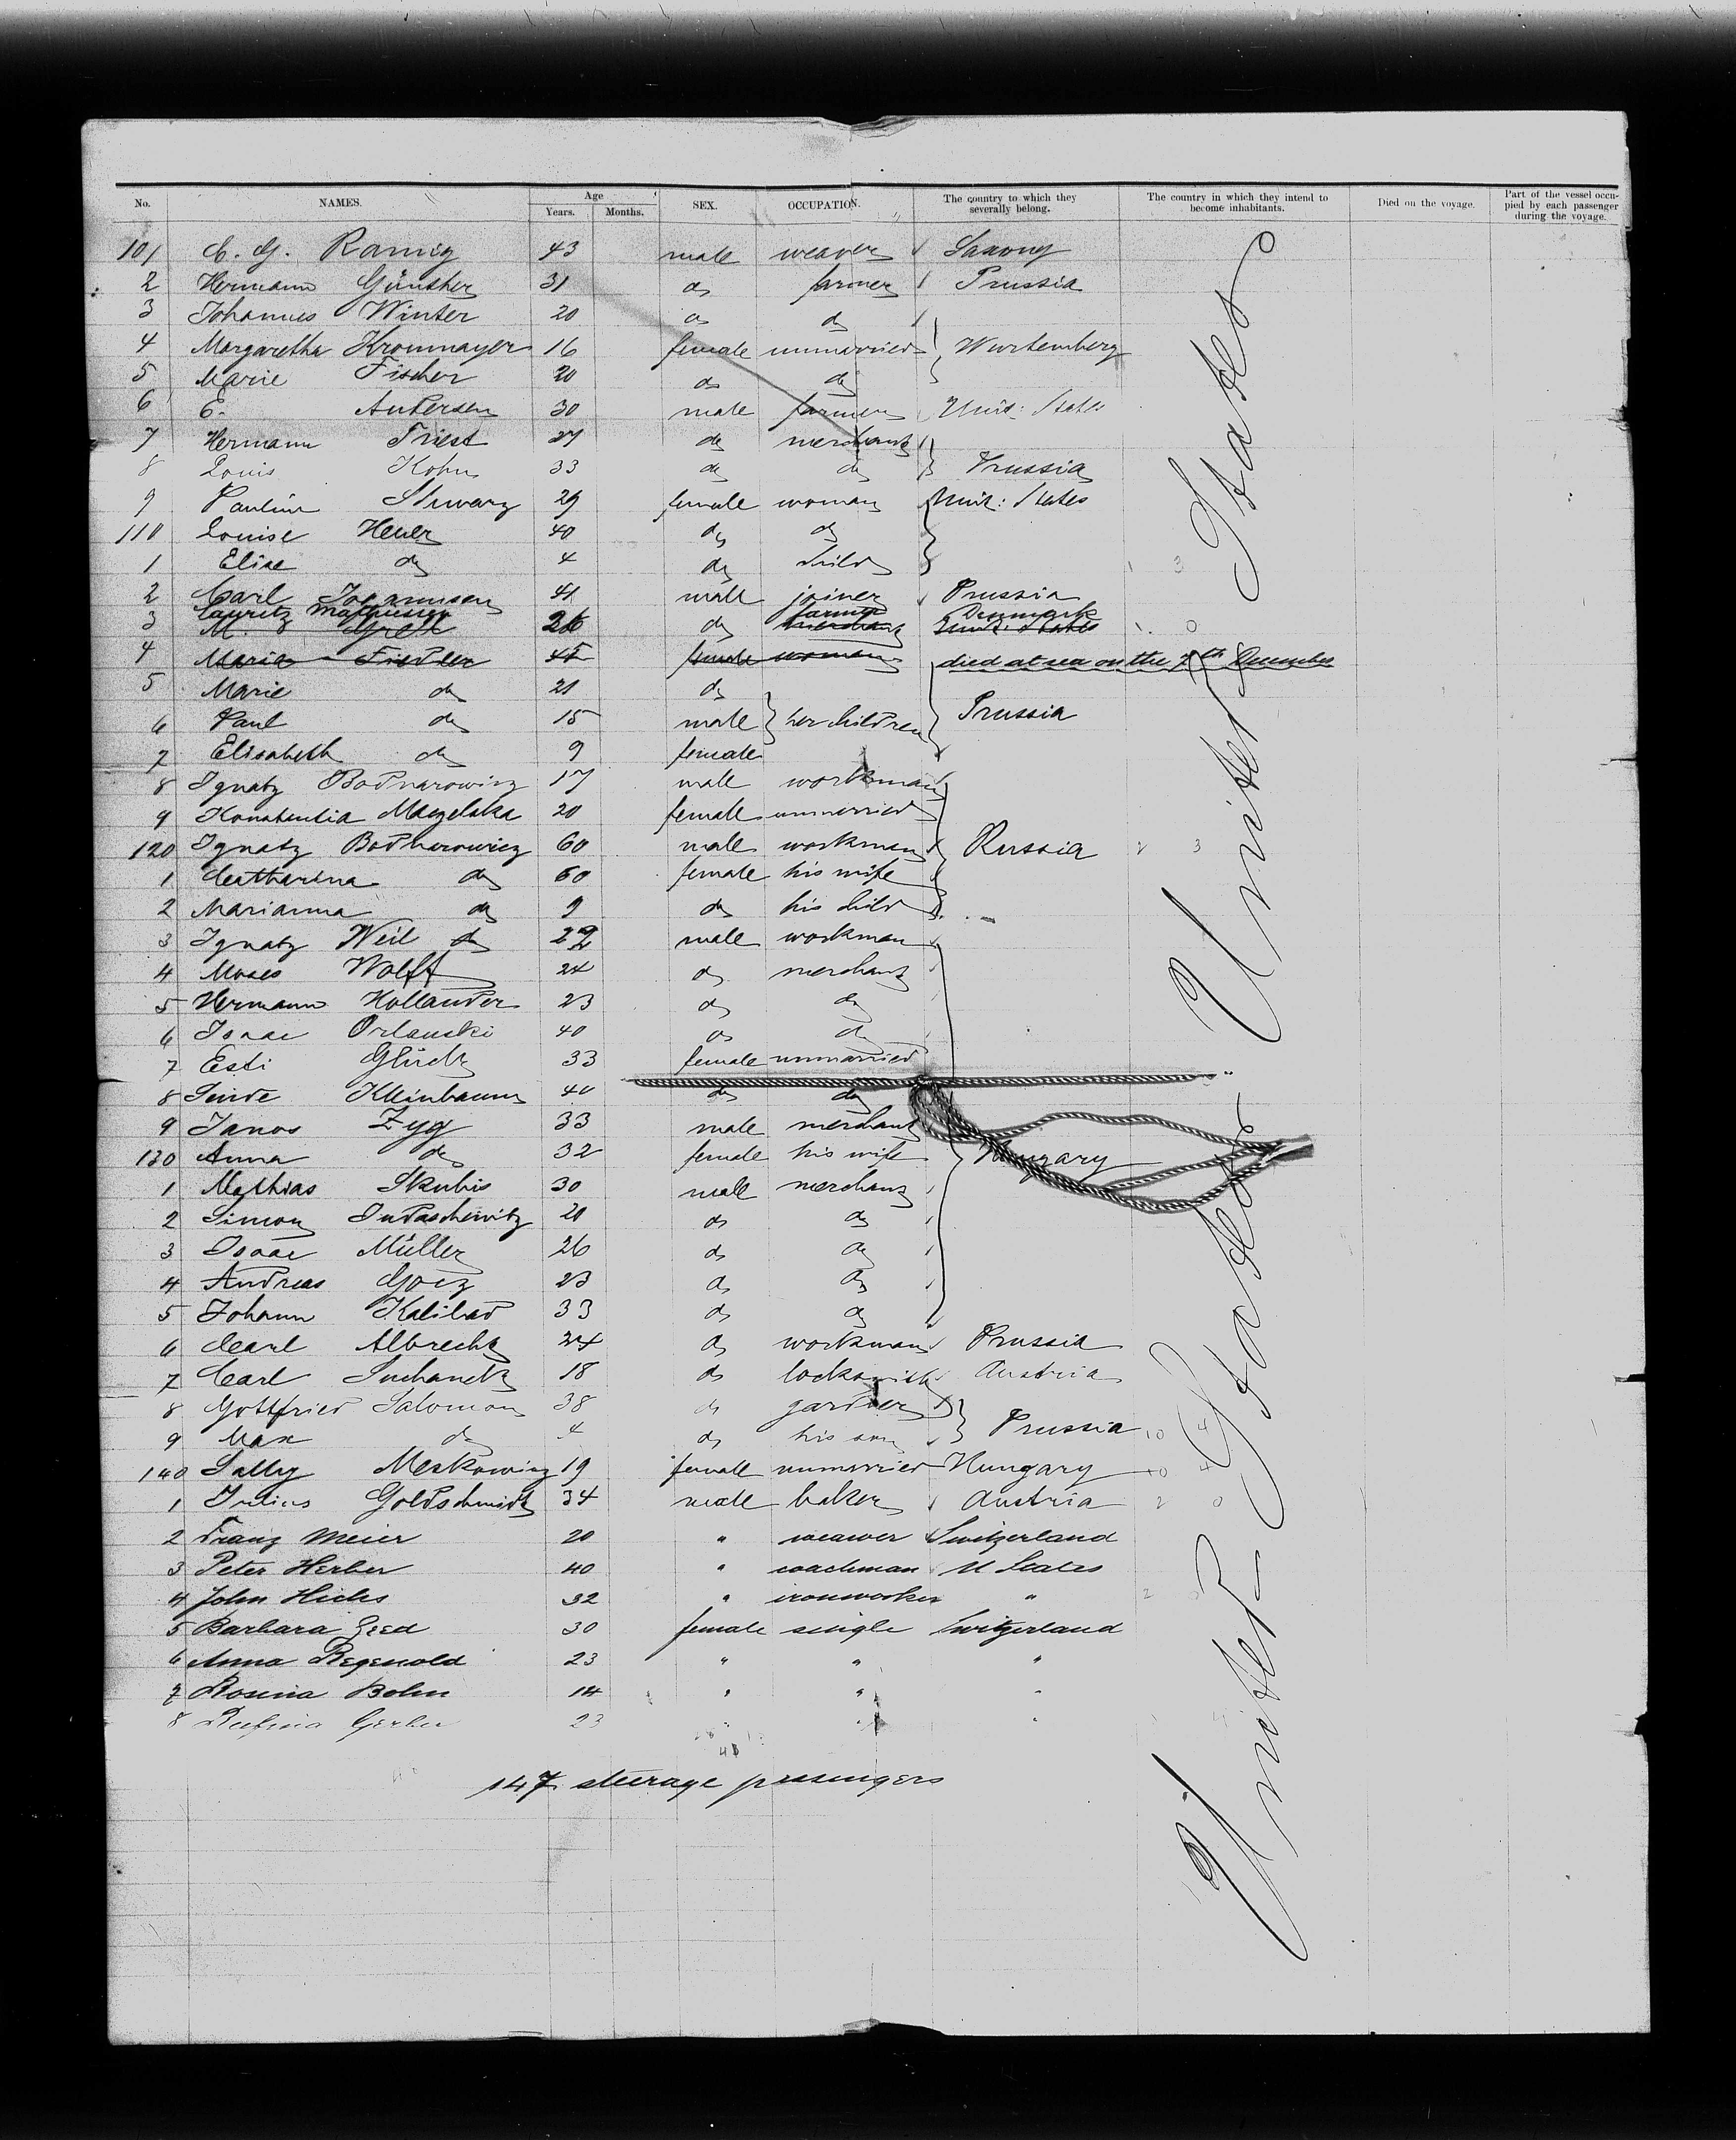 No. NAMES. Age Years. Months. SEX. OCCUPATION. The country to which they severally belong. The country in which they intend to become inhabitants. Died on the voyage. Part of the vessel occupied by each passenger during the voyage.
101 C. G. Ramig 43 male weaver Saxony
2 Hermann Günther 31 do farmer Prussia
3 Johannes Winter 20 do do
4 Margaretha Krommayer 16 female unmarried Wurtemberg
5 Marie Fischer 20 do do
6 E. Andersen 30 male farmer Unit: States
7 Hermann Friest 27 do merchant
8 Louis Kohn 33 do do Prussia
9 Pauline 29 female woman Unit: States
110 Louise Heuer 40 do do
1 Elise do 4 do child
2 Carl 41 male joiner Prussia
Lauritz Mathiesen farmer Denmark
3 M. 26 do merchant Unit: States
4 Maria Fiedler 45 female woman died at sea on the 7th December
5 Marie do 21 do
6 Paul do 15 male her children Prussia
7 Elisabeth do 9 female
8 Ignatz Bodnarowicz 17 male workman
9 Konstantia 20 female unmarried
120 Ignatz Bodnarowicz 60 male workman Russia
1 Catharina do 60 female his wife
2 Marianna do 9 do his child
3 Ignatz Weil do 22 male workman
4 Moses Wolff 24 do merchant
5 Hermann Hollander 23 do do
6 Isaac Orlanski 40 do do
7 Esti Glück 33 female unmarried
8 Kleinbaum 40 do do
9 Janos Zyg 33 male merchant
130 Anna do 32 female his wife Hungary
1 Mathias Skubis 30 male merchant
2 Simon Judaschewitz 20 do do
3 Isaac Müller 26 do do
4 Andreas Goez 23 do do
5 Johann Kalibad 33 do do
6 Carl Albrecht 24 do workman Prussia
7 Carl Suchaneck 18 do locksmith Austria
8 Gottfried Salomon 38 do gardner
9 Max do 4 do his son Prussia
140 Sally Meskowicz 19 female unmarried Hungary
1 Julius Goldschmidt 34 male baker Austria
2 Franz Meier 20 " weawer Switzerland
3 Peter Herber 40 " coachman U States
4 John Hicks 32 " ironworker "
5 Barbara 30 female single Switzerland
6 Anna Regenold 23 " " "
7 Rosina Bohn 14 " " "
8 Gerber 23 " " "
147 steerage passengers
United States
United States